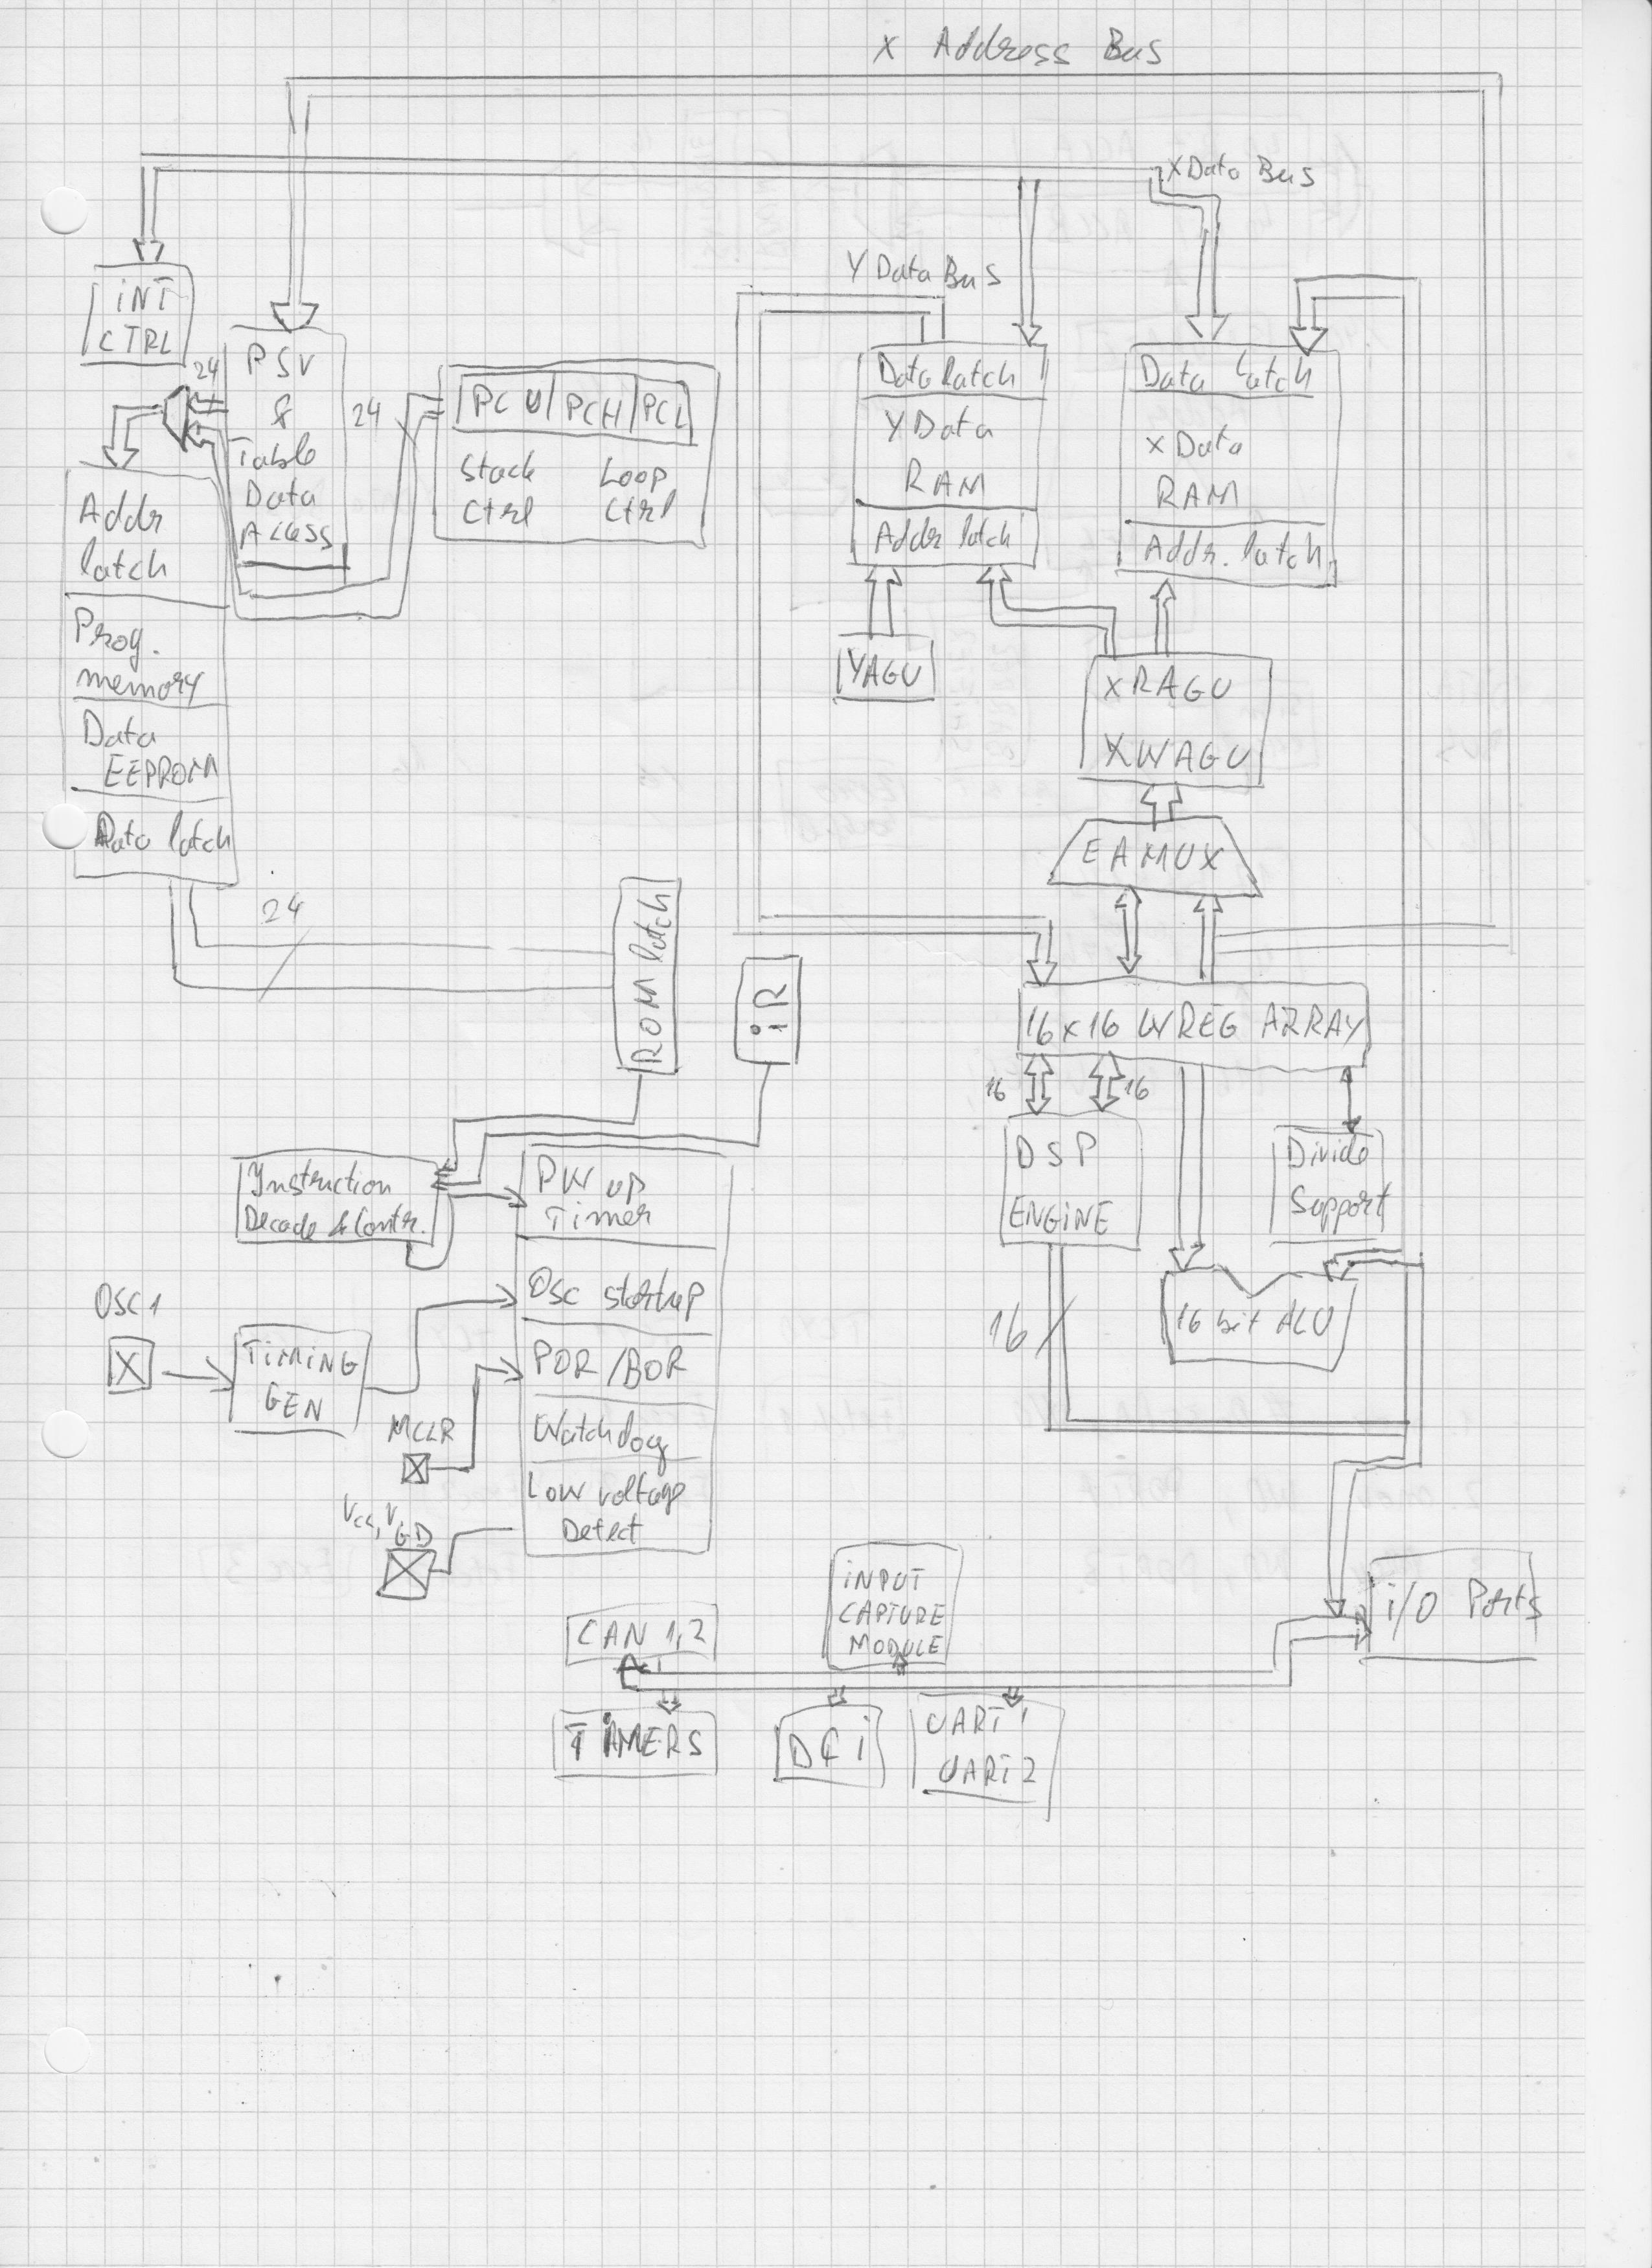 X Address Bus
X Data Bus
Y Data Bus
iNT
CTRL
24
PSV
&
Table
Data
Acess
24
PCU PCH PCL
Stack Loop
Ctrl Ctrl
Data latch
Y Data
RAM
Addr latch
Data latch
X Data
RAM
Addr. latch
Addr
latch
Prog.
memory
Data
EEPROM
Data latch
24
YAGU
XRAGU
XWAGU
EAMUX
ROM latch
iR
16x16 WREG ARRAY
16 16
DSP
ENGiNE
Divide
Support
16 bit ALU
16
Instruction
Decode & Contr.
PW up
Timer
Osc startup
POR/BOR
Watchdog
Low voltage
Detect
OSC1
TiMiNG
GEN
MCLR
i/O Ports
CAN 1,2
iNPUT
CAPTURE
MODULE
TiMERS
DCi
UART 1
UART 2